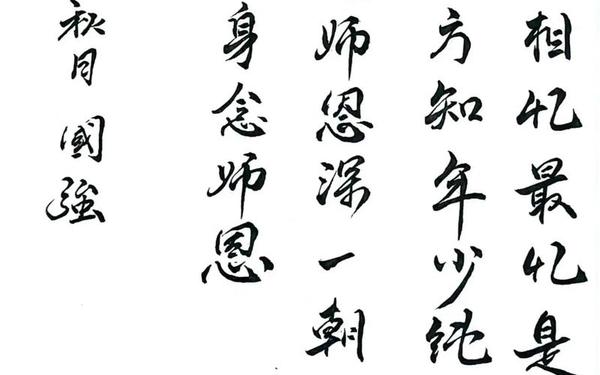 相忆最忆是
方知年少纯
师恩深一朝
身念师恩
秋月 國強